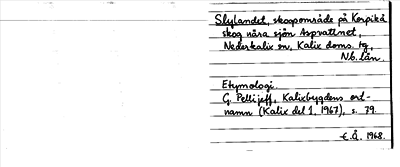 Skylandet, skogsområde på Korpikå
skog nära sjön Aspvattnet,
Nederkalix sn, Kalix doms. tg,
Nb. län.
Etymologi
G. Pellijeff, Kalixbygdens ort-
namn (Kalix del 1, 1967), s. 79.
E.Å. 1968.